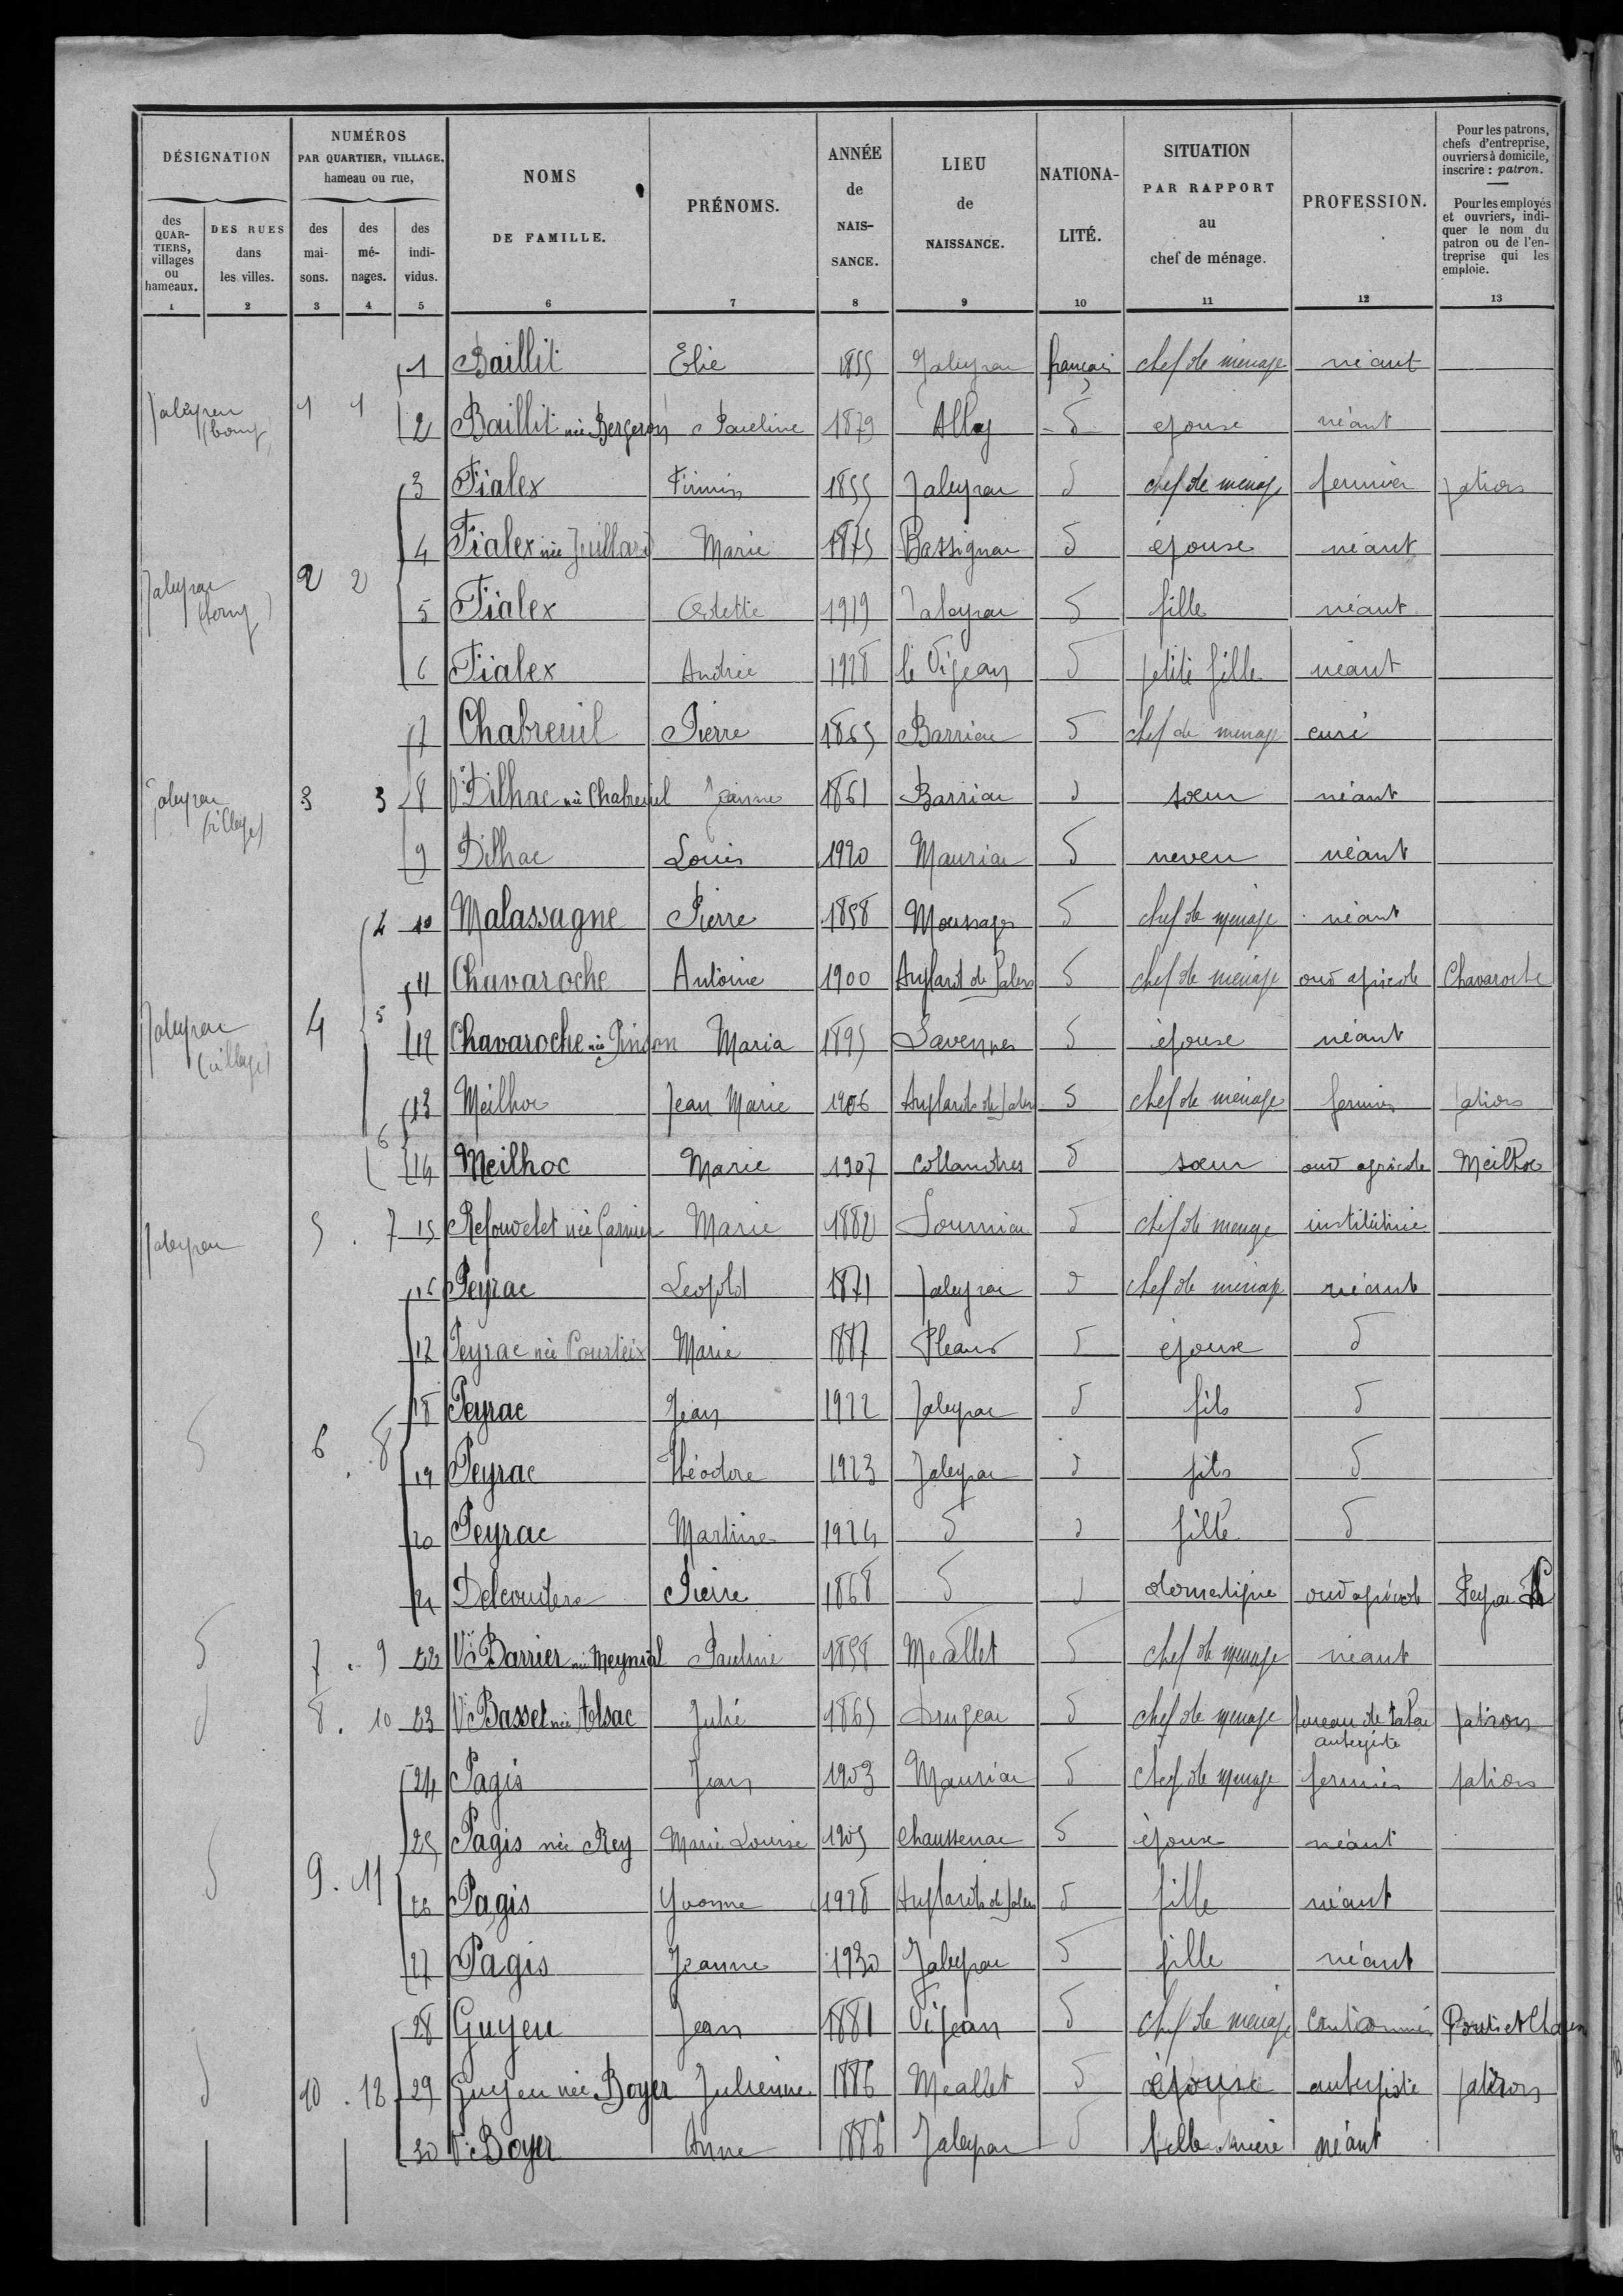 DÉSIGNATION
NUMÉROS
PAR QUARTIER, VILLAGE,
hameau ou rue,
des QUARTIERS, villages ou hameaux.
DES RUES dans les villes.
des maisons.
des ménages.
des individus.
NOMS DE FAMILLE.
PRÉNOMS.
ANNÉE de NAISSANCE.
LIEU de NAISSANCE.
NATIONALITÉ.
SITUATION PAR RAPPORT au chef de ménage.
PROFESSION.
Pour les patrons, chefs d'entreprise, ouvriers à domicile, inscrire : patron.
Pour les employés et ouvriers, indiquer le nom du patron ou de l'entreprise qui les emploie.
1 2 3 4 5 6 7 8 9 10 11 12 13
1 Baillit Elie 1855 Jaleyrac français chef de ménage néant
Jaleyrac (bourg) 1 1 2 Baillit née Bergeron Pauline 1879 Ally d épouse néant
3 Fialex Firmin 1855 Jaleyrac d chef de ménage fermier patron
4 Fialex née Juillard Marie 1875 Bassignac d épouse néant
Jaleyrac (bourg) 2 2 5 Fialex Odette 1919 Jaleyrac d fille néant
6 Fialex Andrée 1928 le Vigean d petite fille néant
7 Chabreuil Pierre 1865 Barriac d chef de ménage curé
Jaleyrac (village) 3 3 8 Vve Dilhac née Chabreuil Jeanne 1861 Barriac d soeur néant
9 Dilhac Louis 1920 Mauriac d neveu néant
4 10 Malassagne Pierre 1858 Moussages d chef de ménage néant
11 Chavaroche Antoine 1900 Anglards de Salers d chef de ménage ouv agricole Chavaroche
Jaleyrac (village) 4 5 12 Chavaroche née Pinson Maria 1895 Savennes d épouse néant
13 Meilhoc Jean Marie 1906 Anglards de Salers d chef de ménage fermier patron
6 14 Meilhoc Marie 1907 Collandres d soeur ouv agricole Meilhoc
Jaleyrac 5 . 7 15 Refouvelet née Garnier Marie 1882 Sourniac d chef de ménage institutrice
16 Peyrac Leopold 1871 Jaleyrac d chef de ménage néant
17 Peyrac née Courteix Marie 1887 Pleaux d épouse d
18 Peyrac Jean 1922 Jaleyrac d fils d
d 6 . 8 19 Peyrac Théodore 1923 Jaleyrac d fils d
20 Peyrac Martine 1924 d d fille d
21 Delcoudere Pierre 1868 d d domestique ouv agricole Peyrac
d 7 . 9 22 Vve Barrier née Meynial Pauline 1858 Meallet d chef de ménage néant
d 8 . 10 23 Vve Basset née Alsac Julie 1865 Drugeac d chef de ménage bureau de tabac aubergiste patron
24 Pagis Jean 1903 Mauriac d chef de ménage fermier patron
25 Pagis née Rey Marie Louise 1905 Chaussenac d épouse néant
d 9 . 11 26 Pagis Yvonne 1928 Anglards de Salers d fille néant
27 Pagis Jeanne 1930 Jaleyrac d fille néant
28 Guyeu Jean 1881 Vigean d chef de ménage Cantonnier Ponts et Chaussées
d 10 . 12 29 Guyeu née Boyer Julienne 1886 Meallet d épouse aubergiste patron
30 Vve Boyer Anne 1886 Jaleyrac d belle mère néant